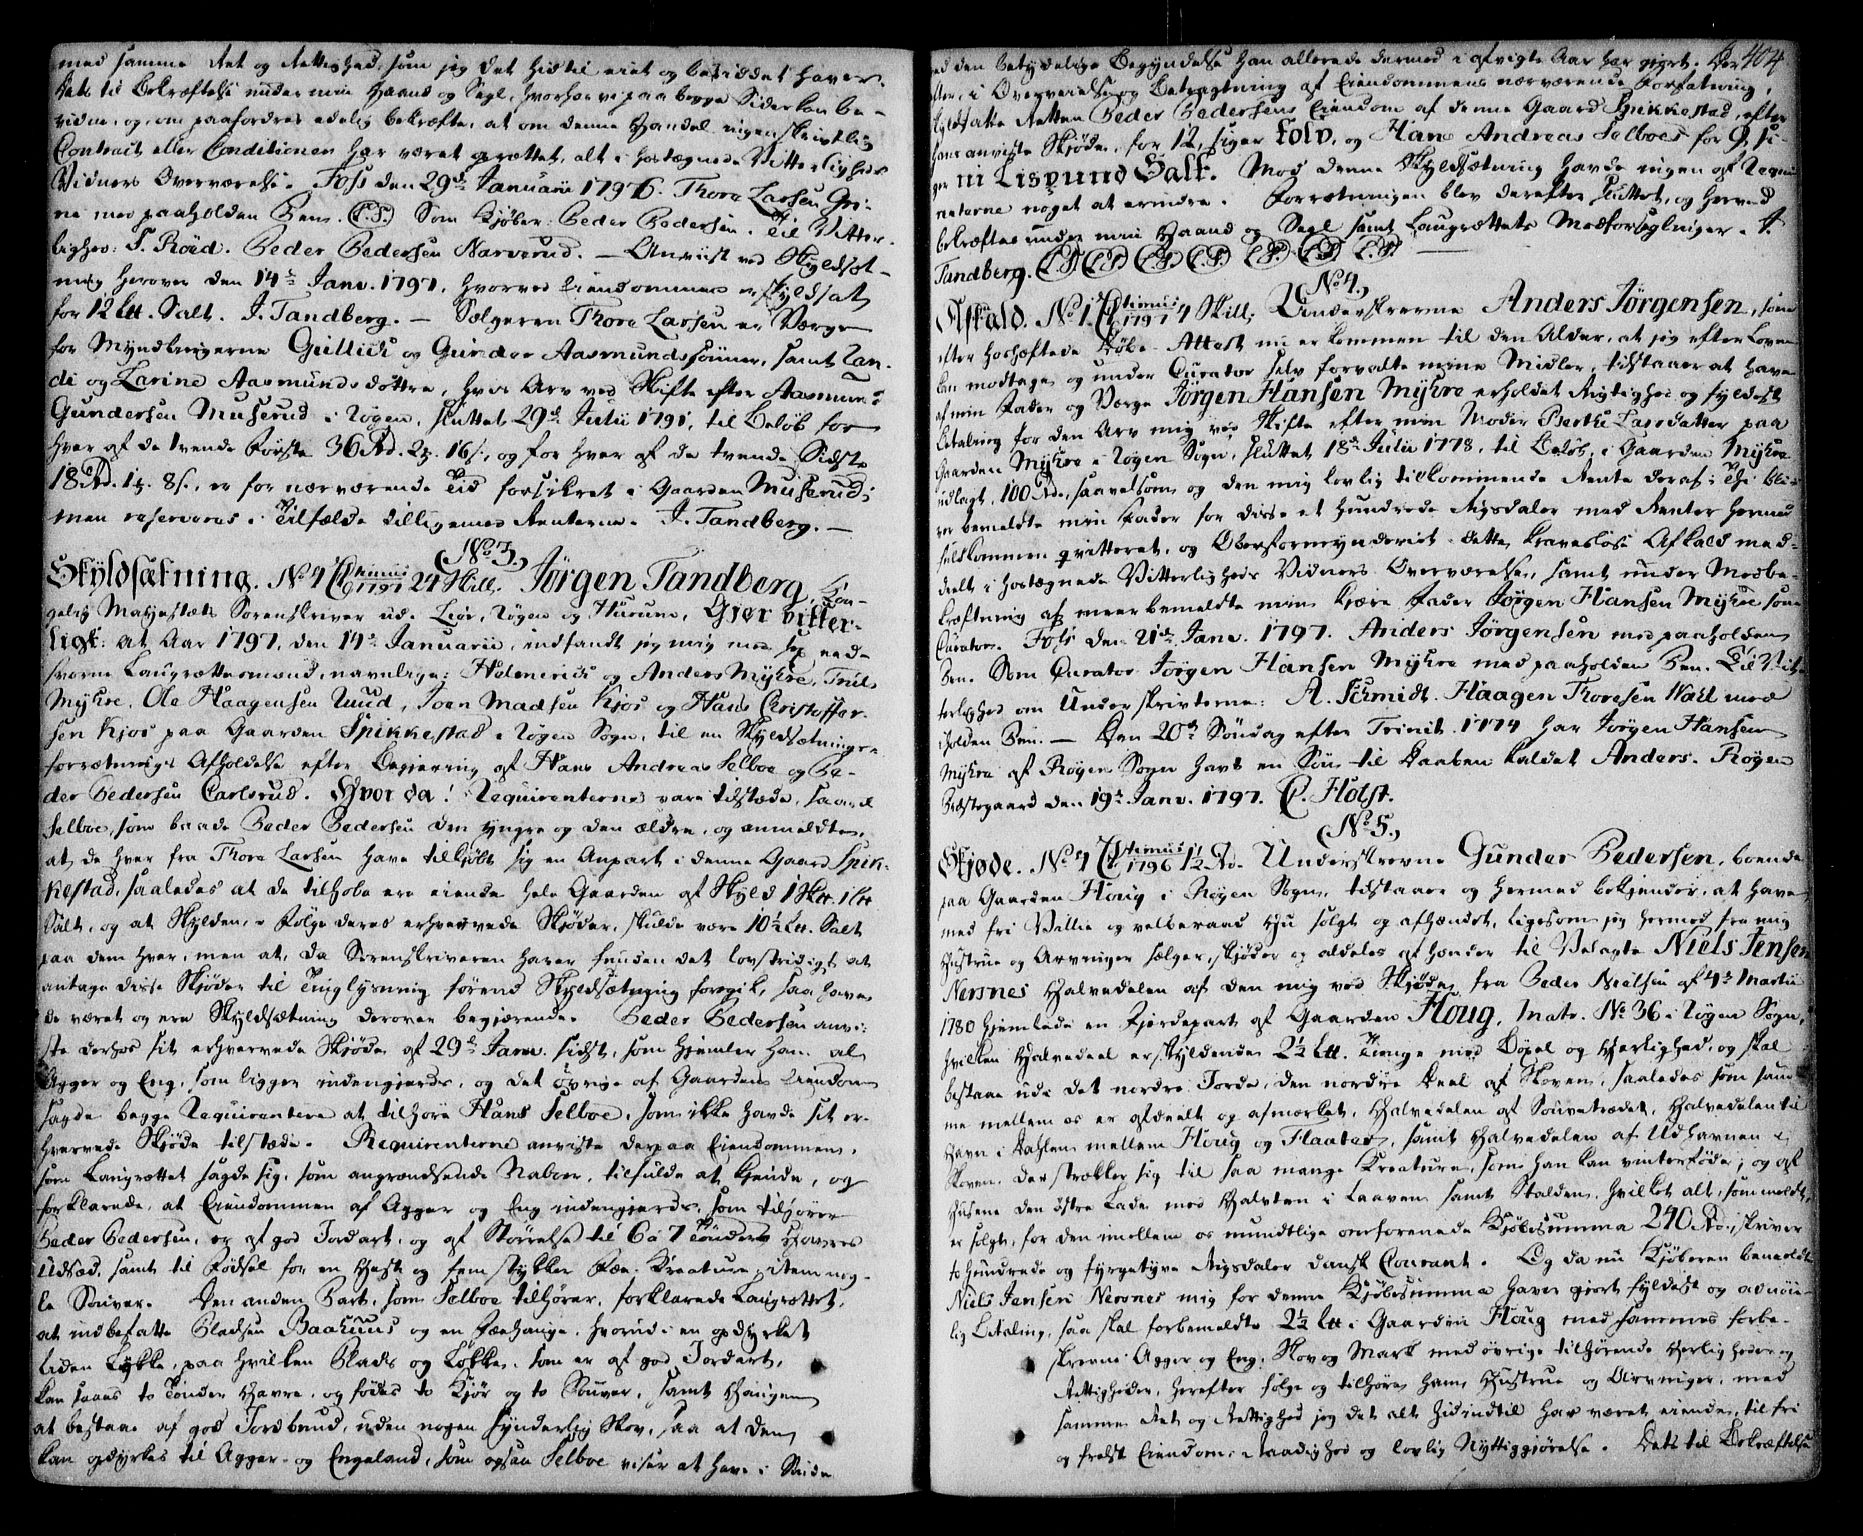 med samme Ret og Rettighed, som jeg det hidtil eiet og besiddet haver.
Dets til Bekræftelse under min Haand og Segl, hvorhos vi paa begge Sider kan be-
vidne, og, om paafordres edelig bekræfte, at om denne Handel ingen skriftlig
Contract eller Conditioner har været oprettet, alt i hostegnede Vitterligheds
Vidners Overværelse. Foss den 29de Januarii 1796. Thore Larssen Gri-
ne med paaholden Pen. (L.S.) Som Kjøber: Peder Pedersen. Til Vitter-
lighed: S. Röed. Peder Pedersen Narverud. — Anviist ved Skyldsæt-
ning herover den 14de Janv. 1797, hvorved Eiendommen er skyldsat
for 12 Lt. Salt. J. Tandberg. — Sælgeren Thore Larssen er Værge
for Myndlingerne Gullich og Gunder Aasmundssönner, samt Ran-
di og Larine Aasmundsdöttre, hvis Arv ved Skifte efter Aasmund
Gundersen Muserud i Røgen, sluttet 29de Julii 1791, til Beløb for
hver af de tvende Første 36 Rd. 2 16 s., og for hver af de tvende Sidste
18 Rd. 1 8 s., er for nærværende Tid forsikret i Gaarden Muserud;
men reserveres i Tilfælde tilligemed Renterne. J. Tandberg. —
No 3.
Skyldsætning. No 4 1797 24 Skill. Jörgen Tandberg, Kon-
gelig Majestæts Sorenskriver udi Lier, Røgen og Hurum, Gjør vitter-
ligt: at Aar 1797, den 14de Januarii, indfandt jeg mig med sex eed-
svorne Laugrettesmænd, navnlige: Halmerich og Anders Myhre, Truls
Myhre, Ole Haagensen Ruud, Joen Madsen Kjos og Hans Christoffer-
sen Kjos paa Gaarden Spikkestad i Røgen Sogn, til en Skyldsætnings-
forretnings Afholdelse efter Begjering af Hans Andreas Selboe og Pe-
der Pedersen Carlsrud. Hvor da! Requirenterne vare tilstæde, saavel
Selboe, som baade Peder Pedersen den yngre og den ældre, og anmeldte,
at de hver fra Thore Larsen have tilkjøbt sig en Anpart i denne Gaard Spik-
kestad, saaledes at de tilhobe ere eiende hele Gaarden af Skyld 1 Skt. 1 Lt
Salt, og at Skylden, i Følge deres erhvervede Skjøder, skulde være 10½ Lt. Salt
paa dem hver, men at, da Sorenskriveren haver funden det lovstridigt at
antage disse Skjøder til Tinglysning førend Skyldsætning foregik, saa have
de været og ere Skyldsætning derover begjærende. Peder Pedersen anvi-
ste derhos sit erhvervede Skjøde af 29de Janv. sidst, som hjemler ham al
Agger og Eng, som ligger indengjerds, og det øvrige af Gaardens Eiendom
sagde begge Requirentere at tilhøre Hans Selboe, som ikke havde sit er-
hvervede Skjøde tilstæde. Requirenterne anviste derpaa Eiendommen,
som Laugrettet sagde sig, som angrændsende Naboer, tilfulde at kjende, og
forklarede, at Eiendommen af Agger og Eng indengjerds, som tilhører
Peder Pedersen, er af god Jordart, og af Størrelse til 6 á 7 Tønders Havres
Udsæd, samt til Fødsel for en Hest og fem stykker Fæe-Kreature, item nog-
le Souver. Den anden Part, som Selboe tilhører, forklarede Laugrettet,
at indbefatte Pladsen Baahuus og en Fæehauge, hvorudi en opdyrket
liden Løkke, paa hvilken Plads og Løkke, som er af god Jordart,
kan saaes to Tønder Havre, og fødes to Kjør og to Souver, samt Haugen
at bestaae af god Jordbund, uden nogen synderlig Skov, saa at den
kan opdyrkes til Agger- og Engeland, som ogsaa Selboe viser at have i Sinde
404
ved den betydelige Begyndelse han allerede dermed i afvigte Aar har gjort. Der-
efter, i Overveielse og Betragtning af Eiendommens nærværende Forfatning,
skyldsatte Retten Peder Pedersens Eiendom af denne Gaard Spikkestad, efter
hans anviste Skjøde, for 12, siger Tolv, og Hans Andreas Selboes for 9, si-
ger ni Lispund Salt. Mod denne Skyldsætning havde ingen af Requi-
renterne noget at erindre. Forretningen blev derefter sluttet, og herved
bekræftes under min Haand og Segl samt Laugrettets Medforseglinger. J.
Tandberg. (L.S.) (L.S.) (L.S.) (L.S.) (L.S.) (L.S.) (L.S.) —
No 4.
Afkald. No 1. 1797 4 Skill. Underskrevne Anders Jörgensen, som
efter hoshæftede Døbe-Attest nu er kommen til den Alder, at jeg efter Loven
kan modtage og under Curator selv forvalte mine Midler, tilstaaer at have
af min Fader og Værge Jörgen Hansen Myhre erholdet Rigtighed og fyldest
Betaling for den Arv mig ved Skifte efter min Moder Berthe Larsdatter paa
Gaarden Myhre i Røgen Sogn, sluttet 18de Julii 1778, til Beløb, i Gaarden Myhre
udlagt, 100 Rd., saavelsom og den mig lovlig tilkommende Rente deraf; Thi bli-
ver bemeldte min Fader for disse et hundrede Rigsdaler med Renter hermed
fuldkommen qvitteret, og Overformynderiet dette kravesløse Afkald med-
deelt i hostegnede Vitterligheds Vidners Overværelse, samt under Medbe-
kræftning af meerbemeldte min kjære Fader Jørgen Hansen Myhre som
Curator. Foss den 21de Janv. 1797. Anders Jörgensen med paaholden
Pen. Som Curator Jörgen Hansen Myhre med paaholden Pen. Til Vit-
terlighed om Underskrifterne: A. Schmidt. Haagen Thoresen Wahl med
iholden Pen. — Den 20de Söndag efter Trinit. 1774 har Jørgen Hansen
Myhre af Røgen Sogn havt en Søn til Daaben kaldet Anders. Røgen
Præstegaard den 19de Janv. 1797. P. Holst.
No 5.
Skjøde. No 4 1796 1½ Rd. Underskrevne Gunder Pedersen, boende
paa Gaarden Houg i Røyen Sogn, tilstaaer og hermed bekjender, at have
med fri Villie og velberaad Hu solgt og afhændet, ligesom jeg hermed fra mig
Hustrue og Arvinger sælger, skjøder og aldeles afhænder til Velagte Niels Jensen
Nersnes Halvedelen af den mig ved Skjøde fra Peder Nielsen af 4de Martii
1780 hjemlede en Fjerdepart af Gaarden Houg, Matr. No 36 i Røgen Sogn,
hvilken Halvedeel er skyldende 2½ Lt. Tunge med Bøxel og Herlighed, og skal
bestaae udi det nordre Jorde, den nordre Deel af Skoven, saaledes som sam-
me mellem os er afdeelt og afmærket, Halvedelen af Souvetrædet, Halvedelen til
Havn i Dahlen mellem Houg og Flaater, samt Halvedelen af Udhavnen i
Skoven, der strækker sig til saa mange Kreature, som han kan vinterføde; og af
Husene den østre Lade med Halvten i Laaven samt Stalden, hvilket alt, som meldt,
er solgt, for den imellem os mundtlige overforenede Kjøbesumma 240 Rd., skriver
to Hundrede og fyrgetyve Rigsdaler Dansk Courant. Og da nu Kjøberen bemeldte
Niels Jensen Nersnes mig for denne Kjøbesumma haver gjort fyldest og adnøie-
lig Betaling, saa skal forbemeldte 2½ Lt. i Gaarden Houg med sammes forbe-
skrevne Agger og Eng, Skov og Mark med øvrige tilhørende Herligheder og
Rettigheder, herefter følge og tilhøre ham, Hustrue og Arvinger, med
samme Ret og Rettighed jeg det alt hidindtil har været eiende, til fri
og frelst Eiendom, Raadighed og lovlig Nyttiggjørelse. Dets til Bekræftelse